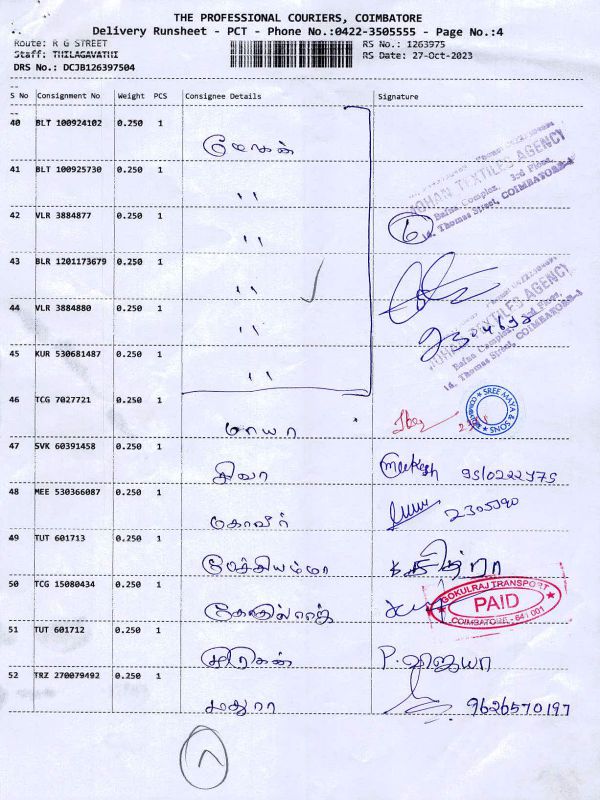 THE PROFESSIONAL COURIERS, COIMBATORE
Delivery Runsheet - PCT - Phone No.:0422-3505555 - Page No.:4
Route: R G STREET RS No.: 1263975
Staff: THILAGAVATHI RS Date: 27-Oct-2023
DRS No.: DCJB126397504
S No Consignment No Weight PCS Consignee Details Signature
40 BLT 100924102 0.250 1 மோகன்
41 BLT 100925730 0.250 1 ''
MOHAN TEXTILES AGENCY
Bafna Complex, 3rd Floor,
16, Thomas Street, COIMBATORE-1
42 VLR 3884877 0.250 1 '' 6
43 BLR 1201173679 0.250 1 ''
44 VLR 3884880 0.250 1 ''
MOHAN TEXTILES AGENCY
Bafna Complex, 3rd Floor,
16, Thomas Street, COIMBATORE-1
45 KUR 530681487 0.250 1 ''
46 TCG 7027721 0.250 1 மாயா SREE MAYA & SONS
47 SVK 60391458 0.250 1 சிவா
48 MEE 530366087 0.250 1 மகாவீர் 2305390
49 TUT 601713 0.250 1
50 TCG 15080434 0.250 1 GOKULRAJ TRANSPORT
PAID
COIMBATORE - 641 001
51 TUT 601712 0.250 1 முருகன் P.
52 TRZ 270079492 0.250 1 மதுரா 9626570197